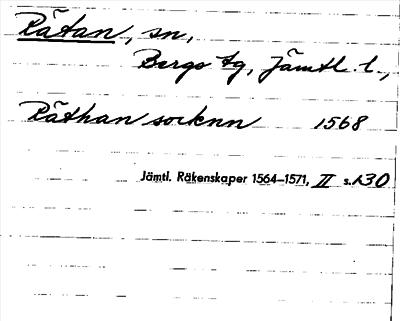 Rätan, sn,
Bergs tg, Jämtl. l.,
Räthan socknn 1568
Jämtl. Räkenskaper 1564–1571, II s. 130